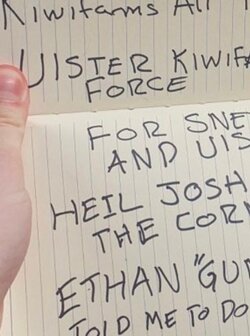 Kiwifarms All
UISTER KIWIFA
FORCE
FOR SNE
AND UIS
HEIL JOSH
THE COR
ETHAN "GU
TOLD ME TO DO